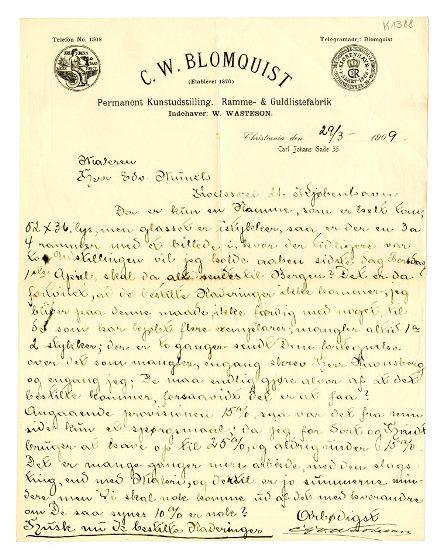 K1388
Telefon No. 1308
Telegramadr.: Blomquist
C. W. BLOMQUIST
(Etableret 1870)
Permanent Kunstudstilling, Ramme- & Guldlistefabrik
Indehaver: W. WASTESON.
Christiania den 29/3 - 1909.
Carl Johans Gade 35
Maleren
Herr Edv. Munch
Kjøbenhavn
Der er kun en Ramme, som er helt
62 x 36, lys, men glasset er istykker, saa er der en 3 a
4 rammer med et billede i, hvor der tidligere var
to. Udstillingen vil jeg holde aaben sidste dag
1ste April, skal da alt sendes til Bergen? Det er da
at de bestilte Raderinger ikke kommer, jeg
bliver paa denne maade ikke færdig med noget, til
de som har kjøbt flere exemplarer, mangler altid 1 a
2 stykker; der er to ganger sendt Dem fortegnelse
over det som mangler, engang skrev Herr
og engang jeg; De maa endlig gjøre alvor af at det
bestilte kommer, forsaavidt det er at faa?
Angaaende provisionen 15%, saa var det fra min
side kun et spørgsmaal; da jeg for Sort og Hvidt
bruger at have op til 25%, og aldrig under 15%
Det er mange ganger mere arbeide, med den slags
ting, end med Malerier, og dertil er jo summerne min-
dre, men Vi skal nok komme ud af det med hverandre
om De saa synes 10% er nok?
Ærbødigst
Husk nu de bestilte Raderinger